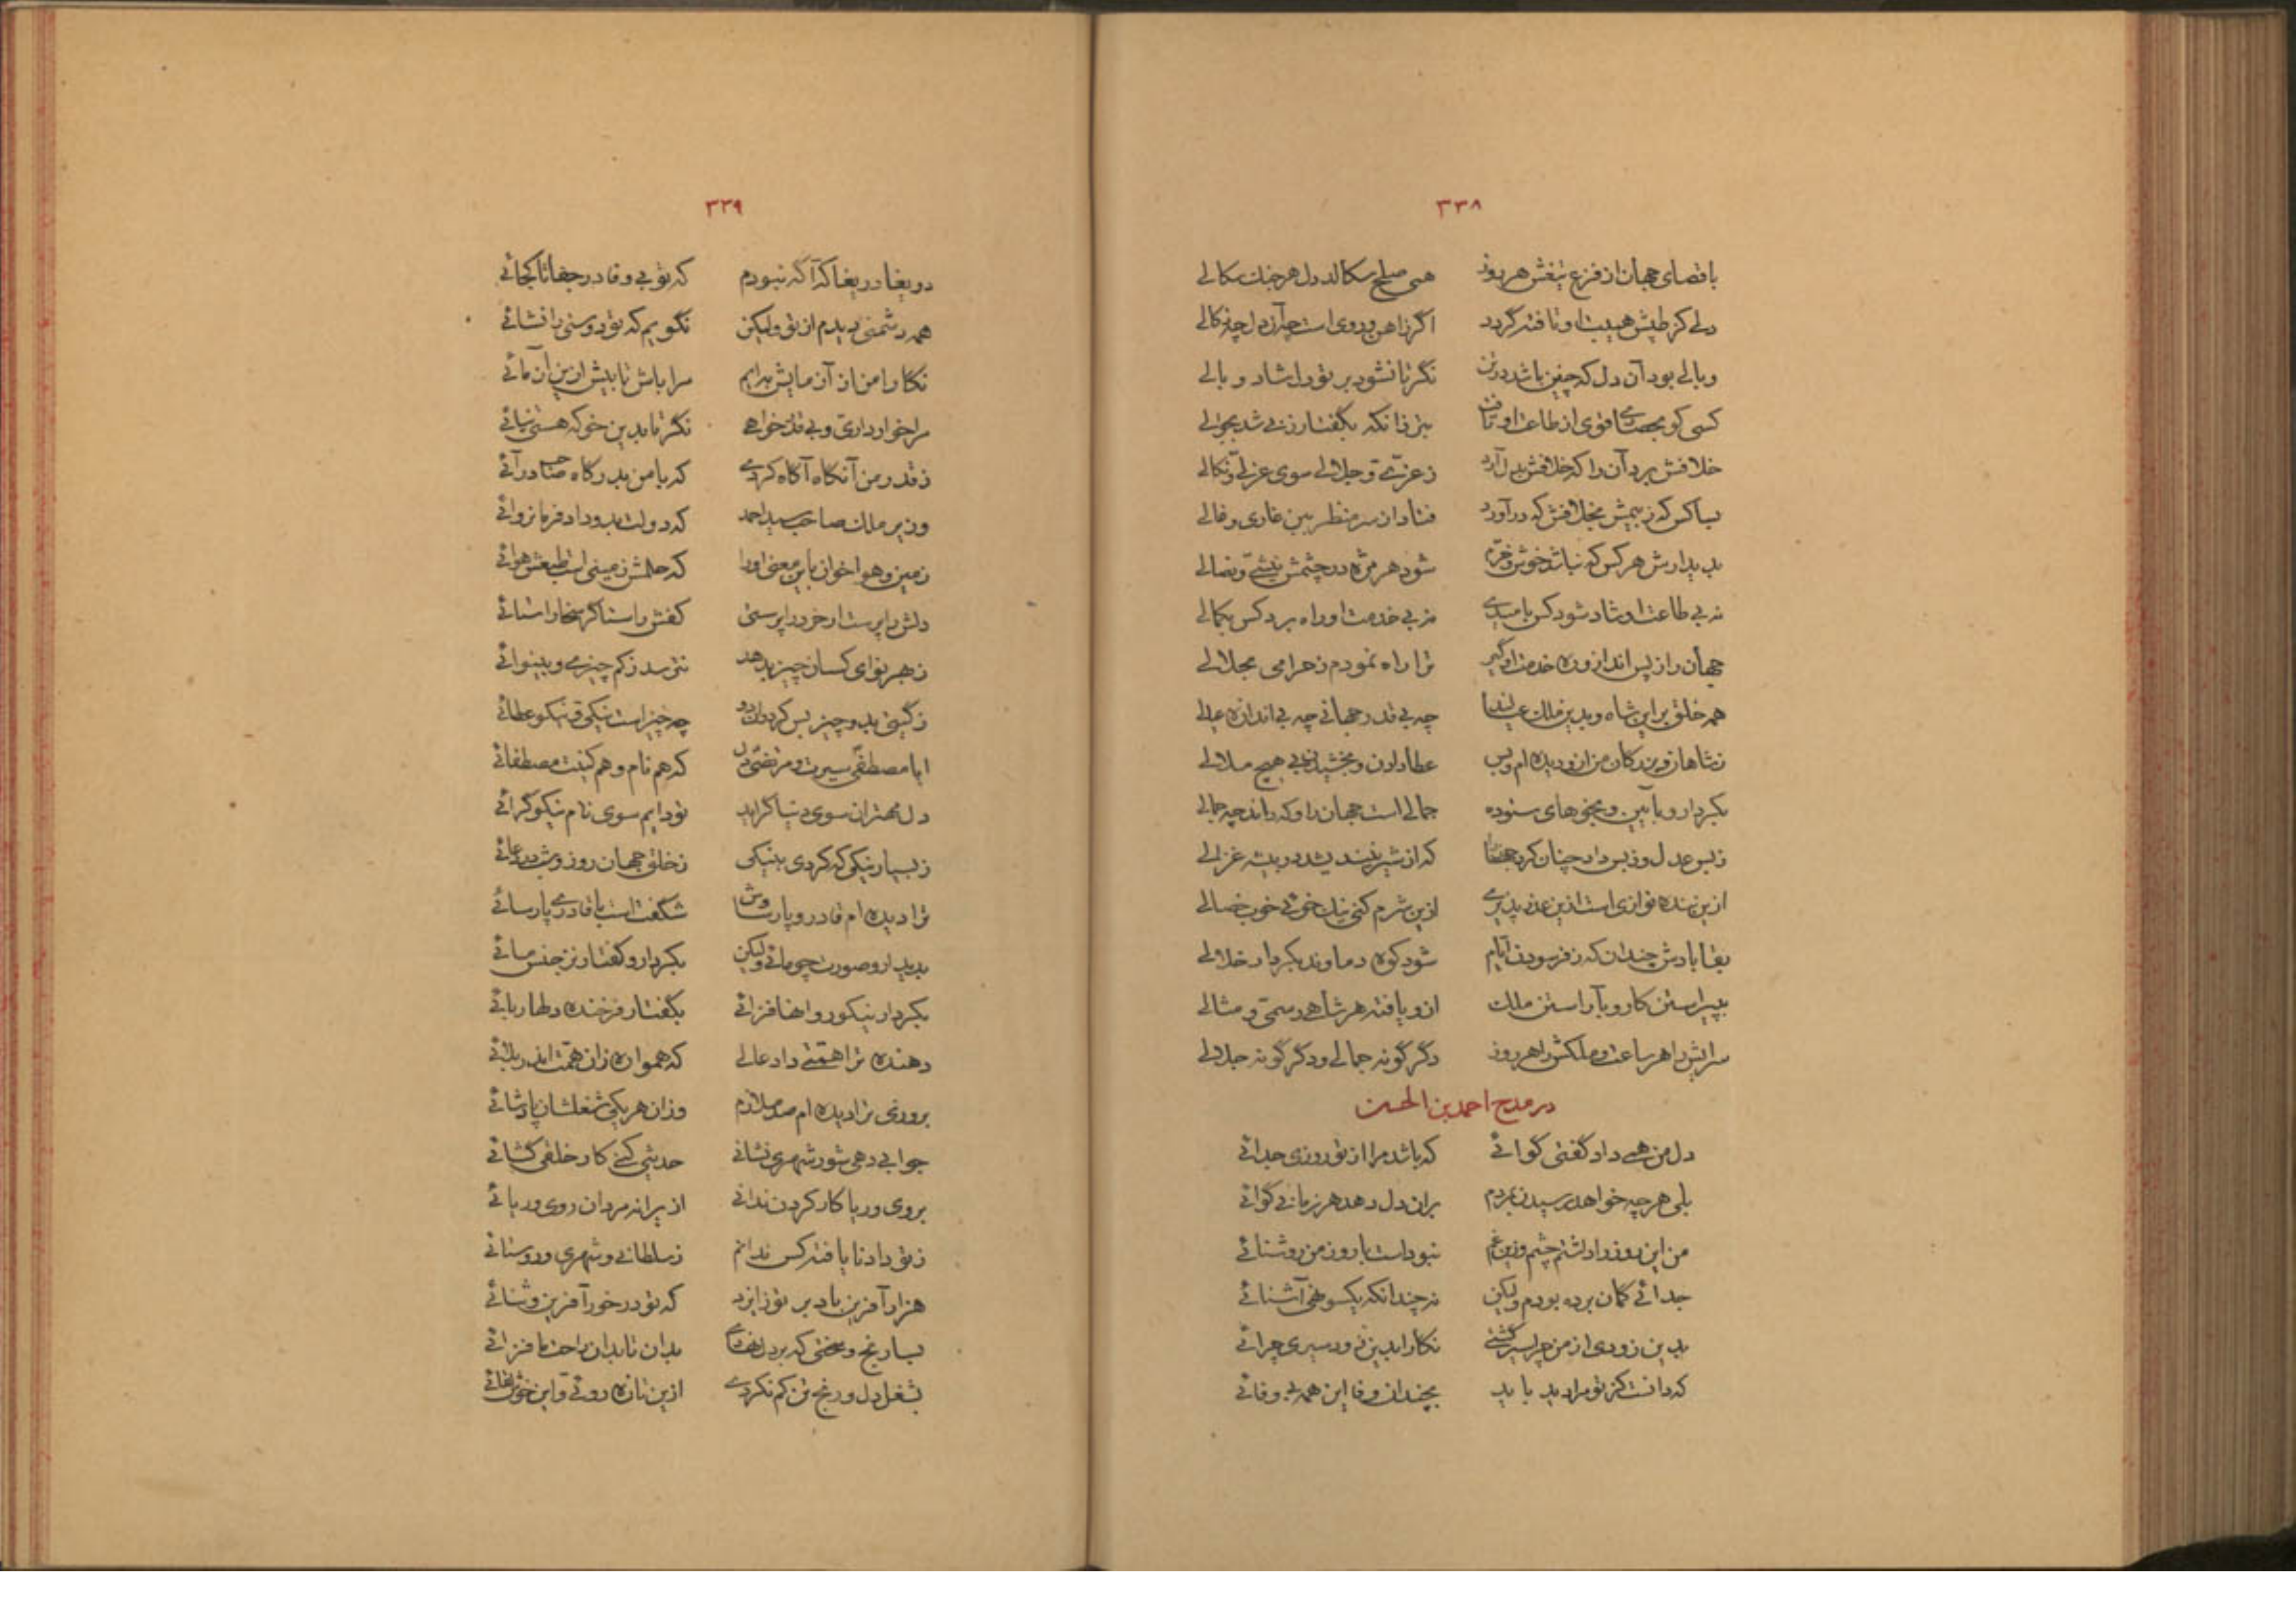 ۳۳۸
باقصای جهان از فزع تیغش هر روز همی صلح سکالد دل هر جنگ سکالی
دلی کز طپش هیبت او تافته گردد اگر زاهن و روی است چه آن دل چه زکالی
وبالی بود آن دل که چنین باشد در تن نگر تا نشود بر تو دل شاد وبالی
کسی کو بحصاری قوی از طاعت او تافت بتر زانکه بگفتار زنی شد بجوالی
خلافش برد آن را که خلافش بدل آرد ز عزی و جلالی سوی عزلی و نکالی
بساکس که ز بیمش بخلافش که در آورد فتاد از سر منظر ببن غاری و فالی
بدیدارش هر کس که نباشد خوش و خرم شود هر مژه در چشمش نیشی و نصالی
نه بی طاعت او شاد شود کس بامیدی نه بی خدمت او راه برد کس بکمالی
جهان را ز پس انداز و ره خدمت او گیر ترا راه نمودم ز حرامی بحلالی
همه خلق بر این شاه و بدین ملک عیالند چه بی قدر جهانی چه بی اندازه عیالی
ز شاهان و بزرگان من ازو دیده ام و بس عطا دادن و بخشیدن بی هیچ ملالی
بکردار و بآیین و بخوهای ستوده جمالی است جهان را و که داند چه جمالی
ز بس عدل و ز بس داد چنان کرد جهان را که از شیر نیندیشد در بیشه غزالی
ازین بنده نوازی است ازین عذر پذیری ازین شرم گنی نیک خوئی خوب خصالی
بقا بادش چندان که ز فرسودن ایام شود کوه دماوند بکردار خلالی
بپیراستن کار و بآراستن ملک ازو یافته هر شاهی رسمی و مثالی
سرایش را هر ساعت و ملکش را هر روز دگر گونه جمالی و دگر گونه جلالی
در مدح احمد بن الحسن
دل من همی داد گفتی گوائی که باشد مرا از تو روزی جدائی
بلی هر چه خواهد رسیدن بمردم بران دل دهد هر زمانی گوائی
من این روز را داشتم چشم وزین غم نبوده است با روز من روشنائی
جدائی گمان برده بودم ولیکن نه چندانکه یکسو نهی آشنائی
بدین زودی از من چرا سیر گشتی نکارا بدین زود سیری چرائی
که دانست کز تو مرا دید باید بچندان وفا این همه بی وفائی
۳۳۹
دریغا دریغا که آگه نبودم که تو بی وفا در جفا تا کجائی
همه دشمنی دیدم از تو ولیکن نگویم که تو دوستی را نشائی
نکارا من از آزمایش به آیم مرا باش تا بیش ازین آزمائی
مرا خوار داری و بی قدر خواهی نگر تا بدین خو که هستی نپائی
ز قدر من آنگاه آگاه کردی که با من بدرگاه صاحب درآئی
وزیر ملک صاحب سید احمد که دولت بدو داد فرمانروائی
زمین و هوا خوان باین معنی او را که حلمش زمینی است طبعش هوائی
دلش را پرست ار خرد را پرستی کفش را ستا گر سخا را ستائی
ز بهر نوای کسان چیز بدهد نترسد ز کم چیزی و بینوائی
ز گیتی بدو چیز بس کرد و آن دو چه چیز است نیکی و نیکو عطائی
ایا مصطفی سیرت و مرتضی دل که هم نام و هم کنیت مصطفائی
دل مهتران سوی دنیا گراید تو دایم سوی نام نیکو گرائی
ز بسیار نیکی که کردی بنیکی ز خلق جهان روز و شب در دعائی
ترا دیده ام قادر و پارسا وش شگفت است با قادری پارسائی
بدیدار و صورت چو مائی ولیکن بکردار و گفتار نز جنس مائی
بکردار نیکو روانها فزائی بگفتار فرخنده دلها ربائی
دهنده ترا همتی داد عالی که همواره زان همت اندر بلائی
بروزی ترا دیده ام صد ملازم وزان هر یکی شغلشان پادشائی
جوابی دهی شور شهری نشانی حدیثی کنی کار خلقی گشائی
بروی و ریا کار کردن ندانی ازیرا نه مردان روی و ریائی
ز تو داد نا یافته کس ندانم ز سلطانی و شهری و روستائی
هزار آفرین باد بر تو ز ایزد که تو در خور آفرین و ثنائی
بسا رنج و سختی که بر دل نهادی بدان تا بدان راحت ما فزائی
بشغل دل و رنج تن کم نکردی ازین تازه روئی و این خوش لقائی